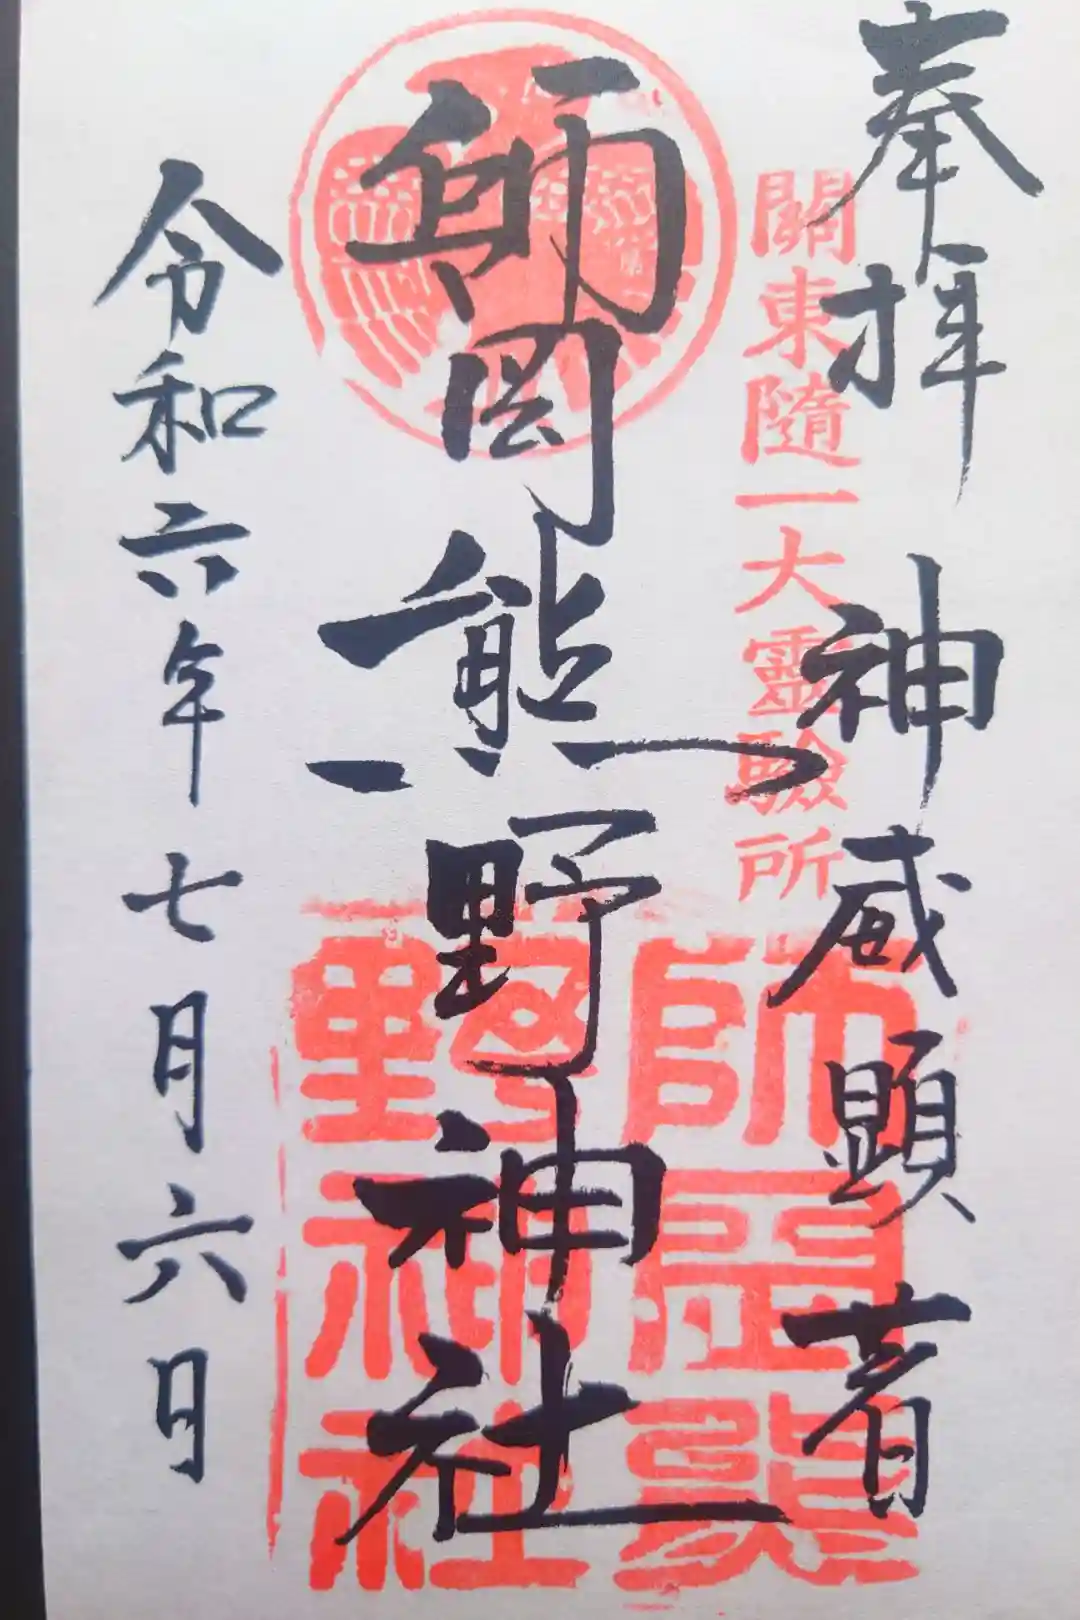 奉拝
神威顕著
關東隨一大靈驗所
師岡熊野神社
師岡熊
野神社
令和六年七月六日